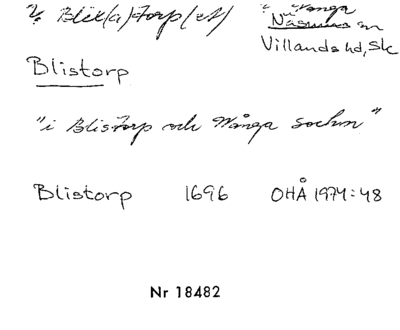 ? Blek(a)torp(et) i Vånga
Näsums sn
Villands hd, Sk
Blistorp
"i Blistorp och Wånga sochn"
Blistorp 1696 OHÅ 1974:48
Nr 18482